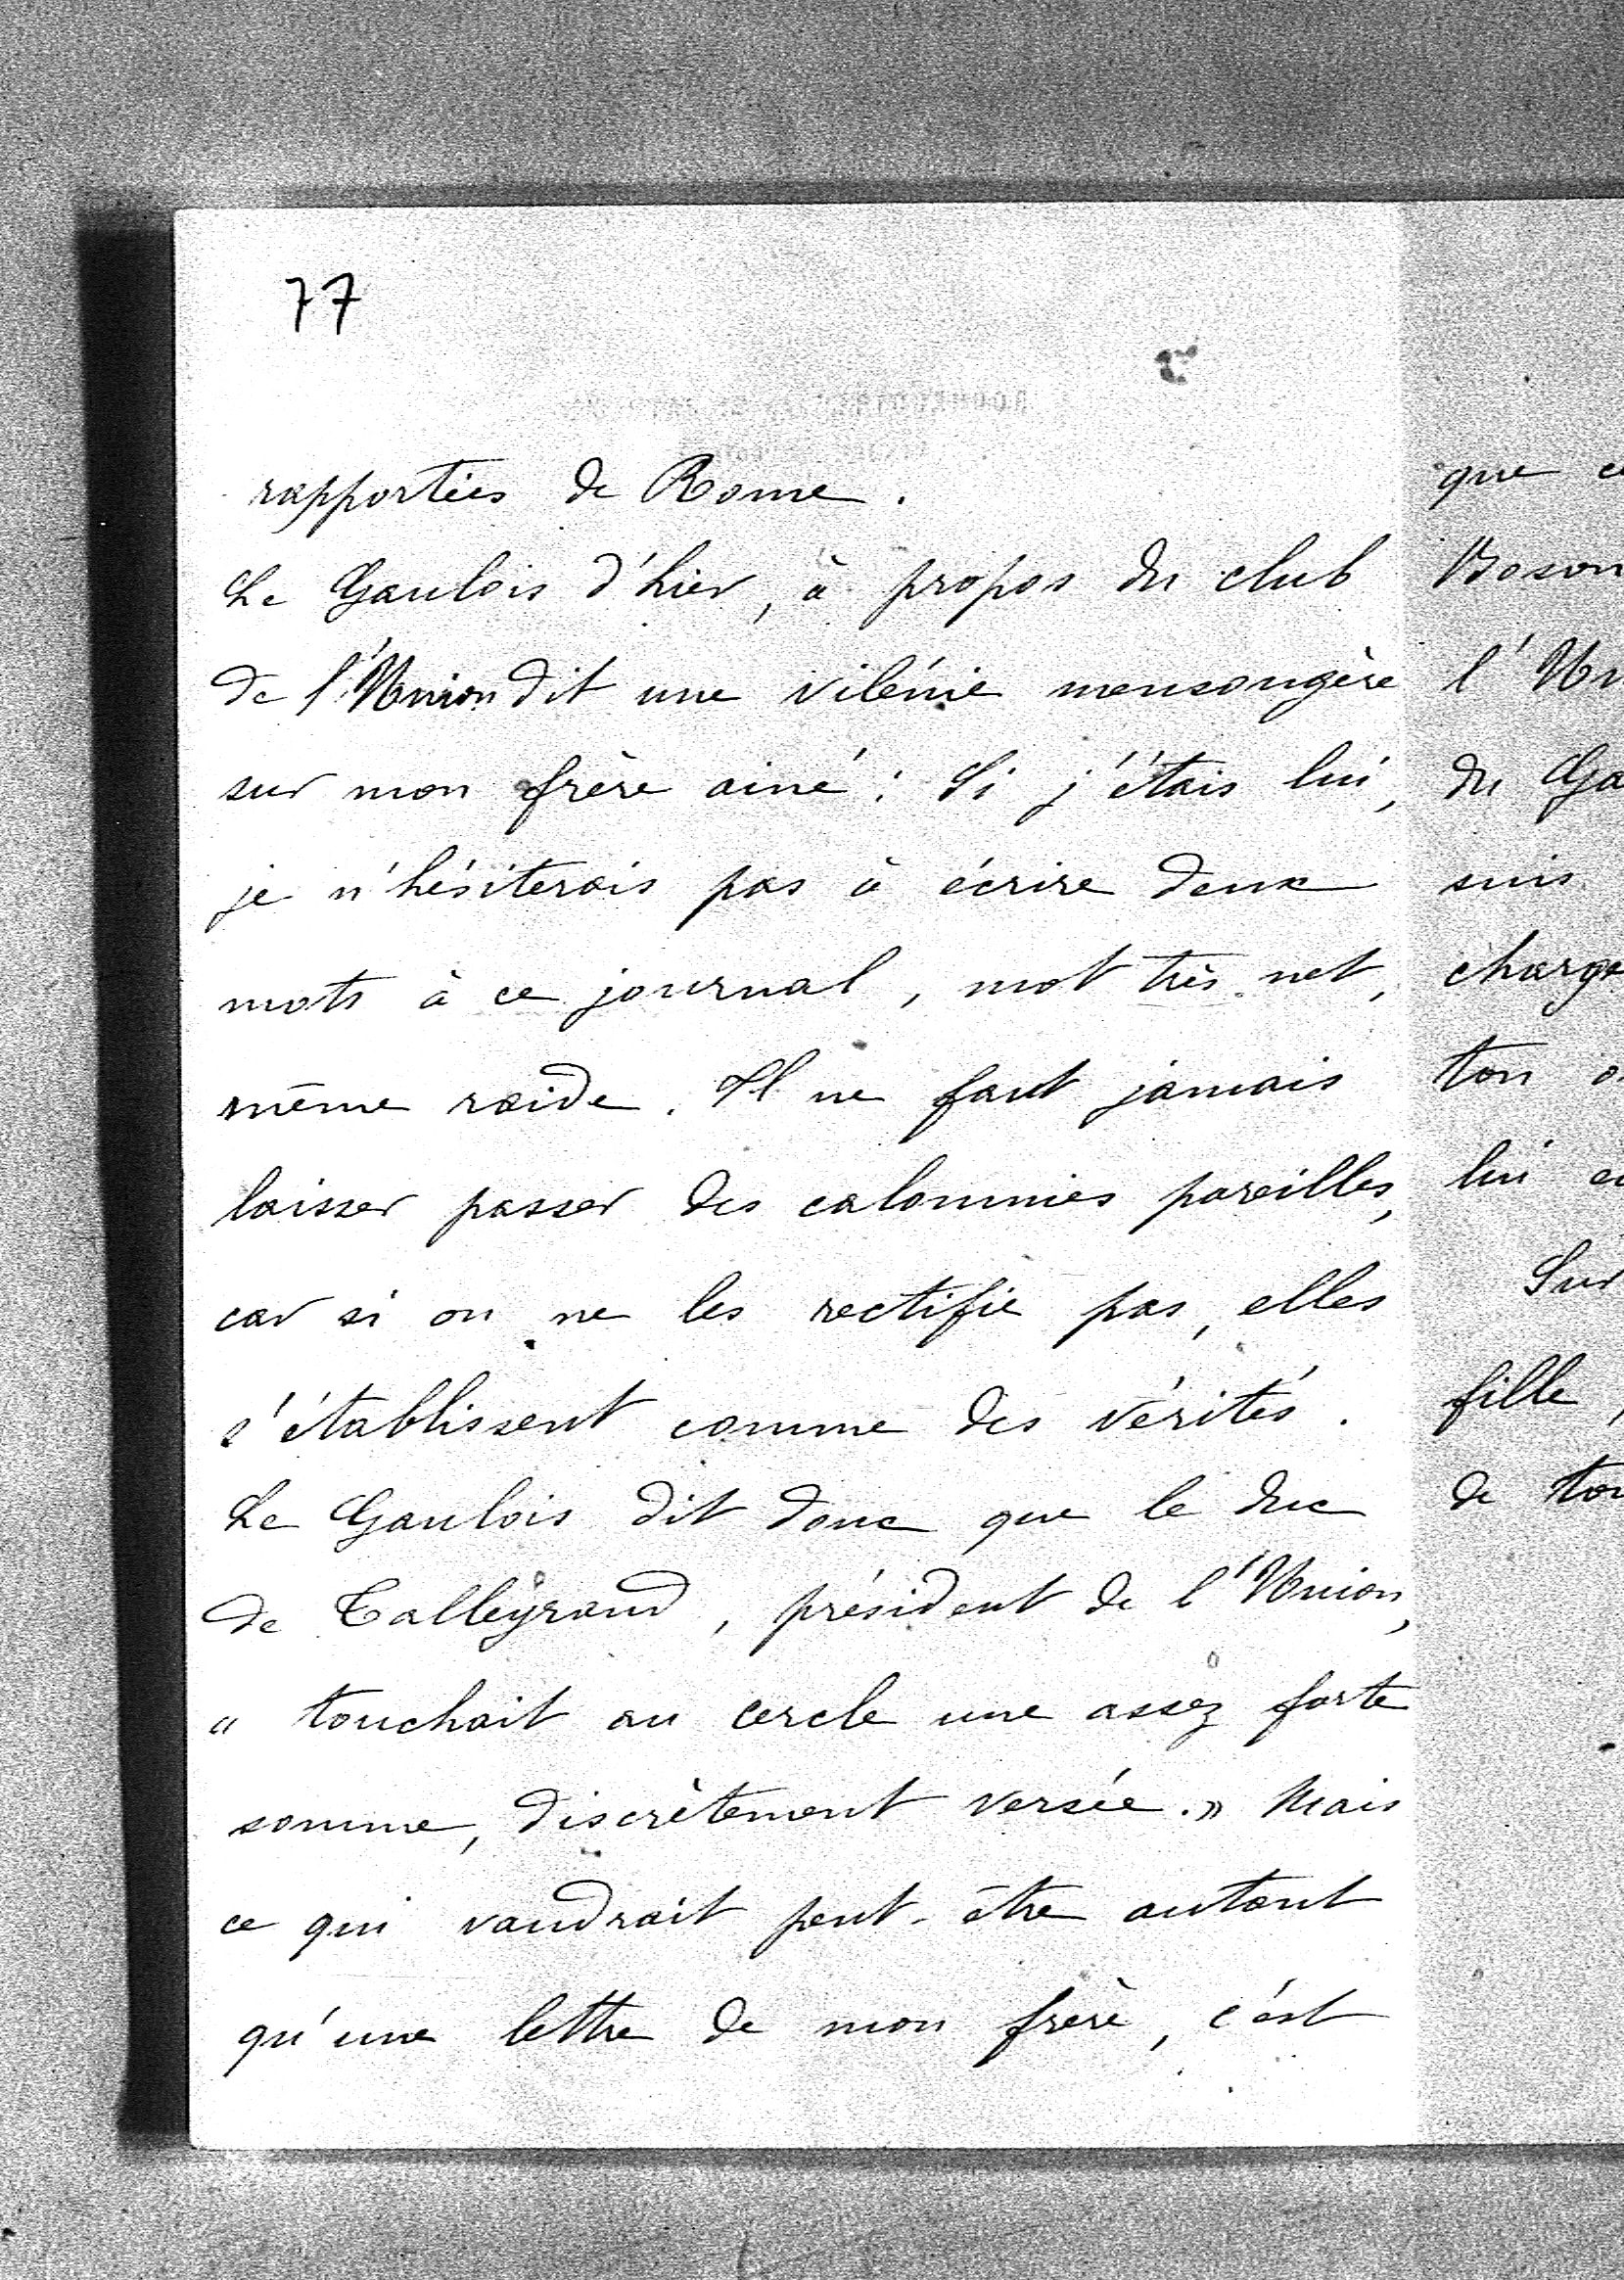 77
rapportées de Rome.
Le Gaulois d'hier, à propos du club
de l'Union dit une vilénie mensongère
sur mon frère ainé : Si j'étais lui,
je n'hésiterais pas à écrire deux
mots à ce journal, mot très net,
même raide. Il ne faut jamais
laisser passer des calomnies pareilles,
car si on ne les rectifie pas, elles
s'établissent comme des vérités.
Le Gaulois dit donc que le duc
de Talleyrand, président de l'Union,
« touchait au cercle une assez forte
somme, discrètement versée. » Mais
ce qui vaudrait peut-être autant
qu'une lettre de mon frère, c'est
que
Boson
l'
du
suis
ton
lui
Sur
fille,
de